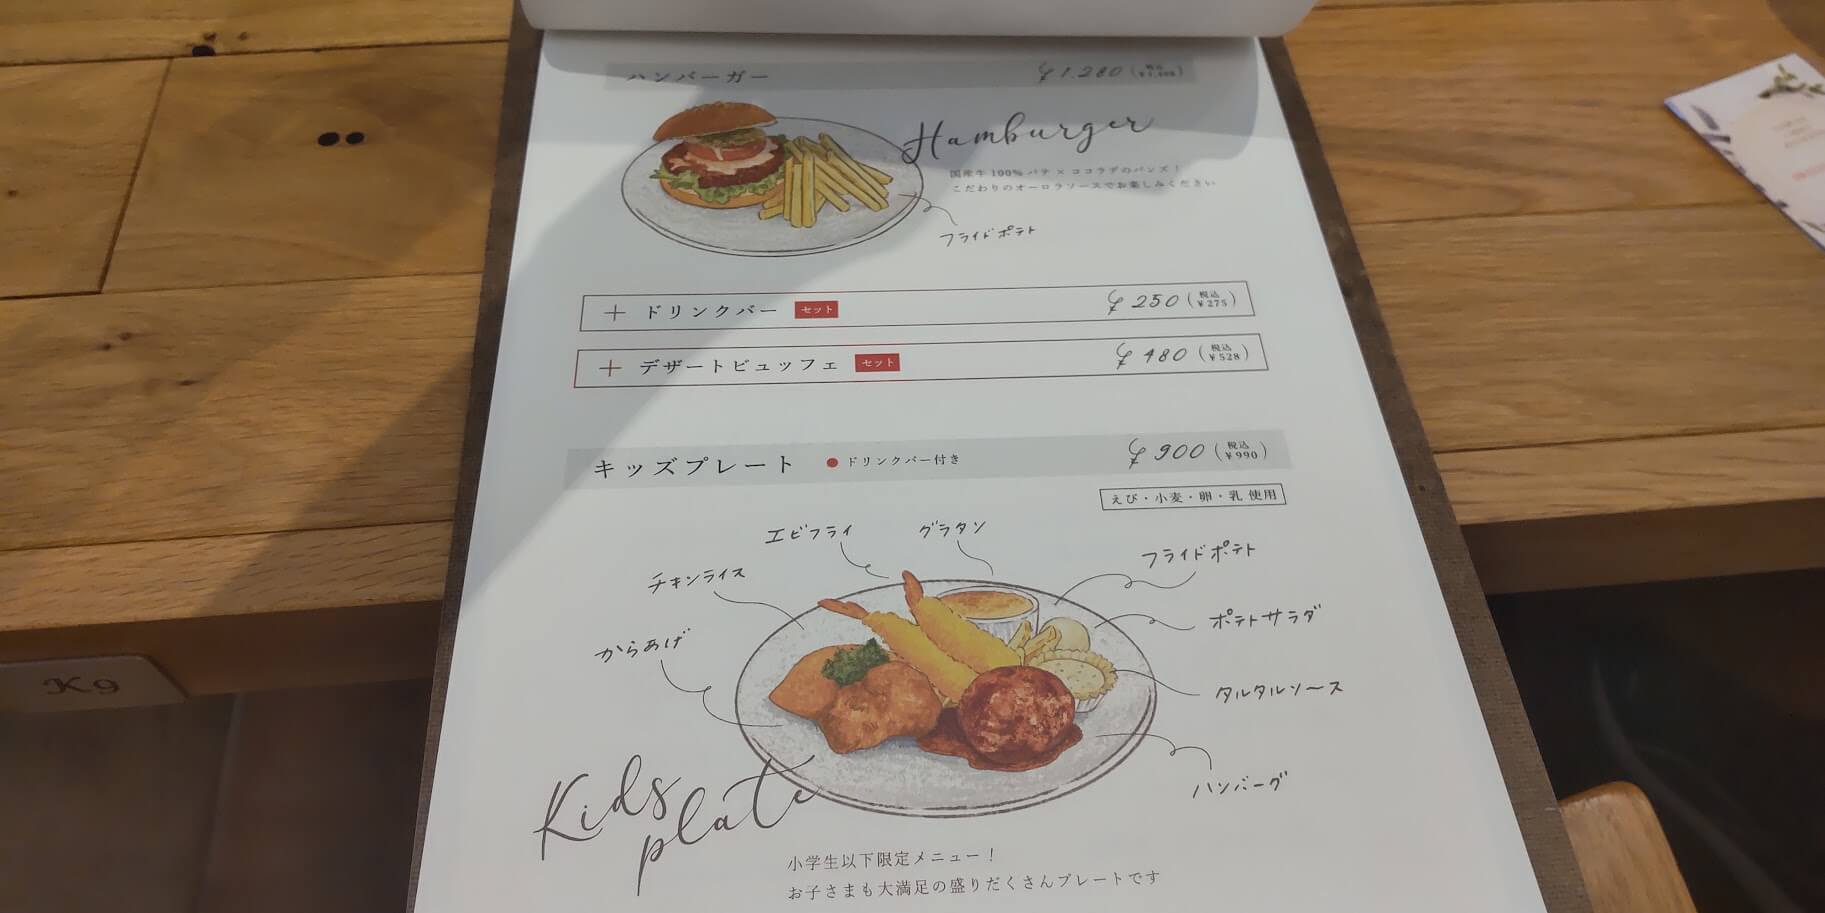 ハンバーガー ¥1,280 (税込 ¥1,408)
Hamburger
国産牛100%パテ×ココラデのバンズ!
こだわりのオーロラソースでお楽しみください
フライドポテト
+ ドリンクバー セット ¥250 (税込 ¥275)
+ デザートビュッフェ セット ¥480 (税込 ¥528)
キッズプレート ●ドリンクバー付き ¥900 (税込 ¥990)
えび・小麦・卵・乳 使用
エビフライ
グラタン
フライドポテト
チキンライス
ポテトサラダ
からあげ
タルタルソース
ハンバーグ
Kids
plate
小学生以下限定メニュー!
お子さまも大満足の盛りだくさんプレートです
K9